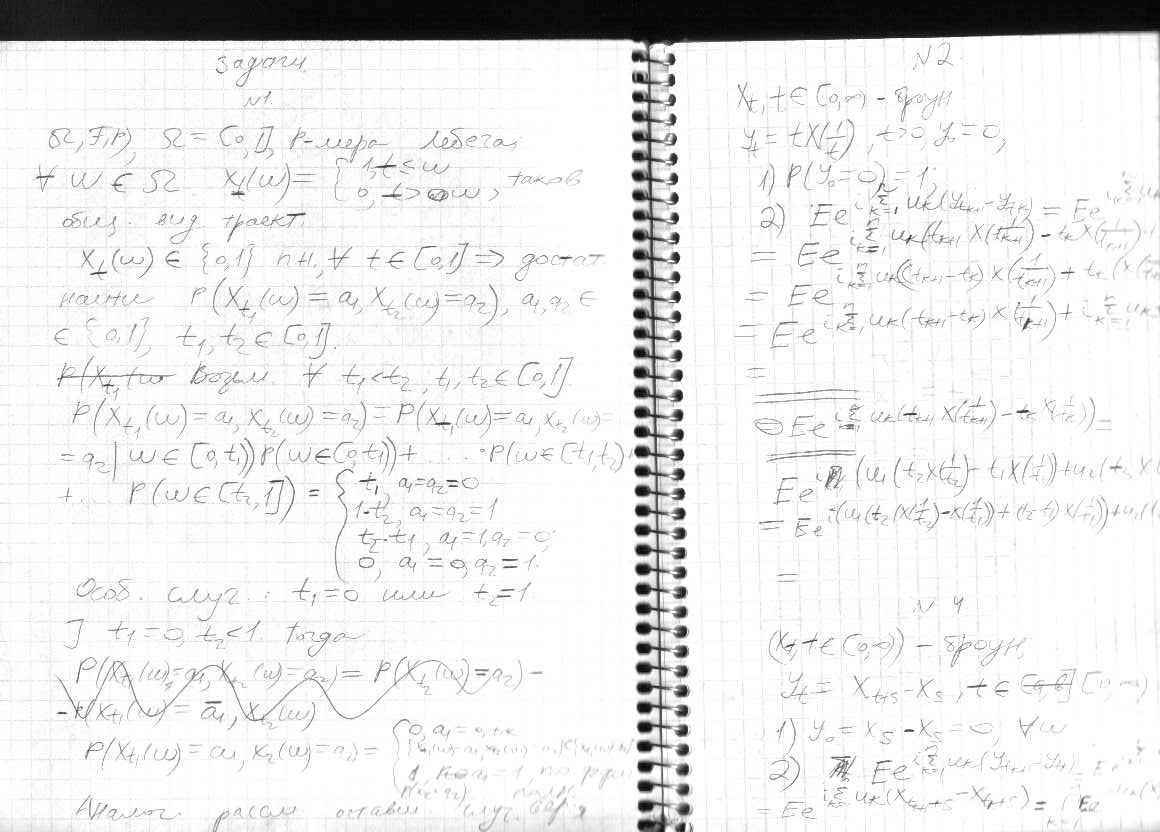 Задачи.
N1.
Ω, F, P), Ω = [0,1], P-мера Лебега;
∀ w ∈ Ω X_t(w) = { 1, t ≤ w
0, t > w, таков
общ. вид траект.
X_t(w) ∈ {0,1} п.н., ∀ t ∈ [0,1] ⇒ достат
найти P(X_{t_1}(w) = a_1, X_{t_2}(w) = a_2), a_1, a_2 ∈
∈ {0,1}, t_1, t_2 ∈ [0,1].
Возьм. ∀ t_1 < t_2, t_1, t_2 ∈ [0,1].
P(X_{t_1}(w) = a_1, X_{t_2}(w) = a_2) = P(X_{t_1}(w) = a_1, X_{t_2}(w) =
= a_2 | w ∈ [0, t_1)) P(w ∈ [0, t_1)) + ... · P(w ∈ [t_1, t_2)) +
+ ... P(w ∈ [t_2, 1]) = { t_1, a_1 = a_2 = 0
1-t_2, a_1 = a_2 = 1
t_2-t_1, a_1 = 1, a_2 = 0;
0, a_1 = 0, a_2 = 1.
Особ. случ.: t_1 = 0 или t_2 = 1.
] t_1 = 0, t_2 < 1. Тогда
P(X_{t_1}(w) = a_1, X_{t_2}(w) = a_2) = {
0, a_1 = 0, т.к
Аналог. рассм. остави. случ.
N2.
X_t, t ∈ [0,∞) - броун
y_t = tX(1/t), t>0, y_0 = 0,
1) P(y_0 = 0) = 1.
2) E e^{i Σ_{k=1}^n u_k(y_{t_{k+1}} - y_{t_k})} = E e
= E e^{i Σ_{k=1}^n u_k(t_{k+1} X(1/t_{k+1}) - t_k X(
= E e^{i Σ_{k=1}^n u_k((t_{k+1} - t_k) X(1/t_{k+1}) + t_k (X(
= E e^{i Σ_{k=1}^n u_k(t_{k+1} - t_k) X(1/t_{k+1}) + i Σ_{k=1}^n u_k
=
⊜ E e^{i Σ u_k(t_{k+1} X(1/t_{k+1}) - t_k X(1/t_k))} =
E e^{i (u_1(t_2 X(1/t_2) - t_1 X(1/t_1)) + u_2(t_3 X
= E e^{i(u_1(t_2(X(1/t_2) - X(1/t_1)) + (t_2-t_1) X(1/t_1)) + u_2(
=
N 4
(X_t, t ∈ [0,∞)) - броун,
y_t = X_{t+s} - X_s, t ∈ [0,∞)
1) y_0 = X_s - X_s = 0, ∀w
2) E e^{i Σ_{k=1}^n u_k(y_{t_{k+1}} - y_{t_k})} =
= E e^{i Σ u_k(X_{t_{k+1}+s} - X_{t_k+s})} =